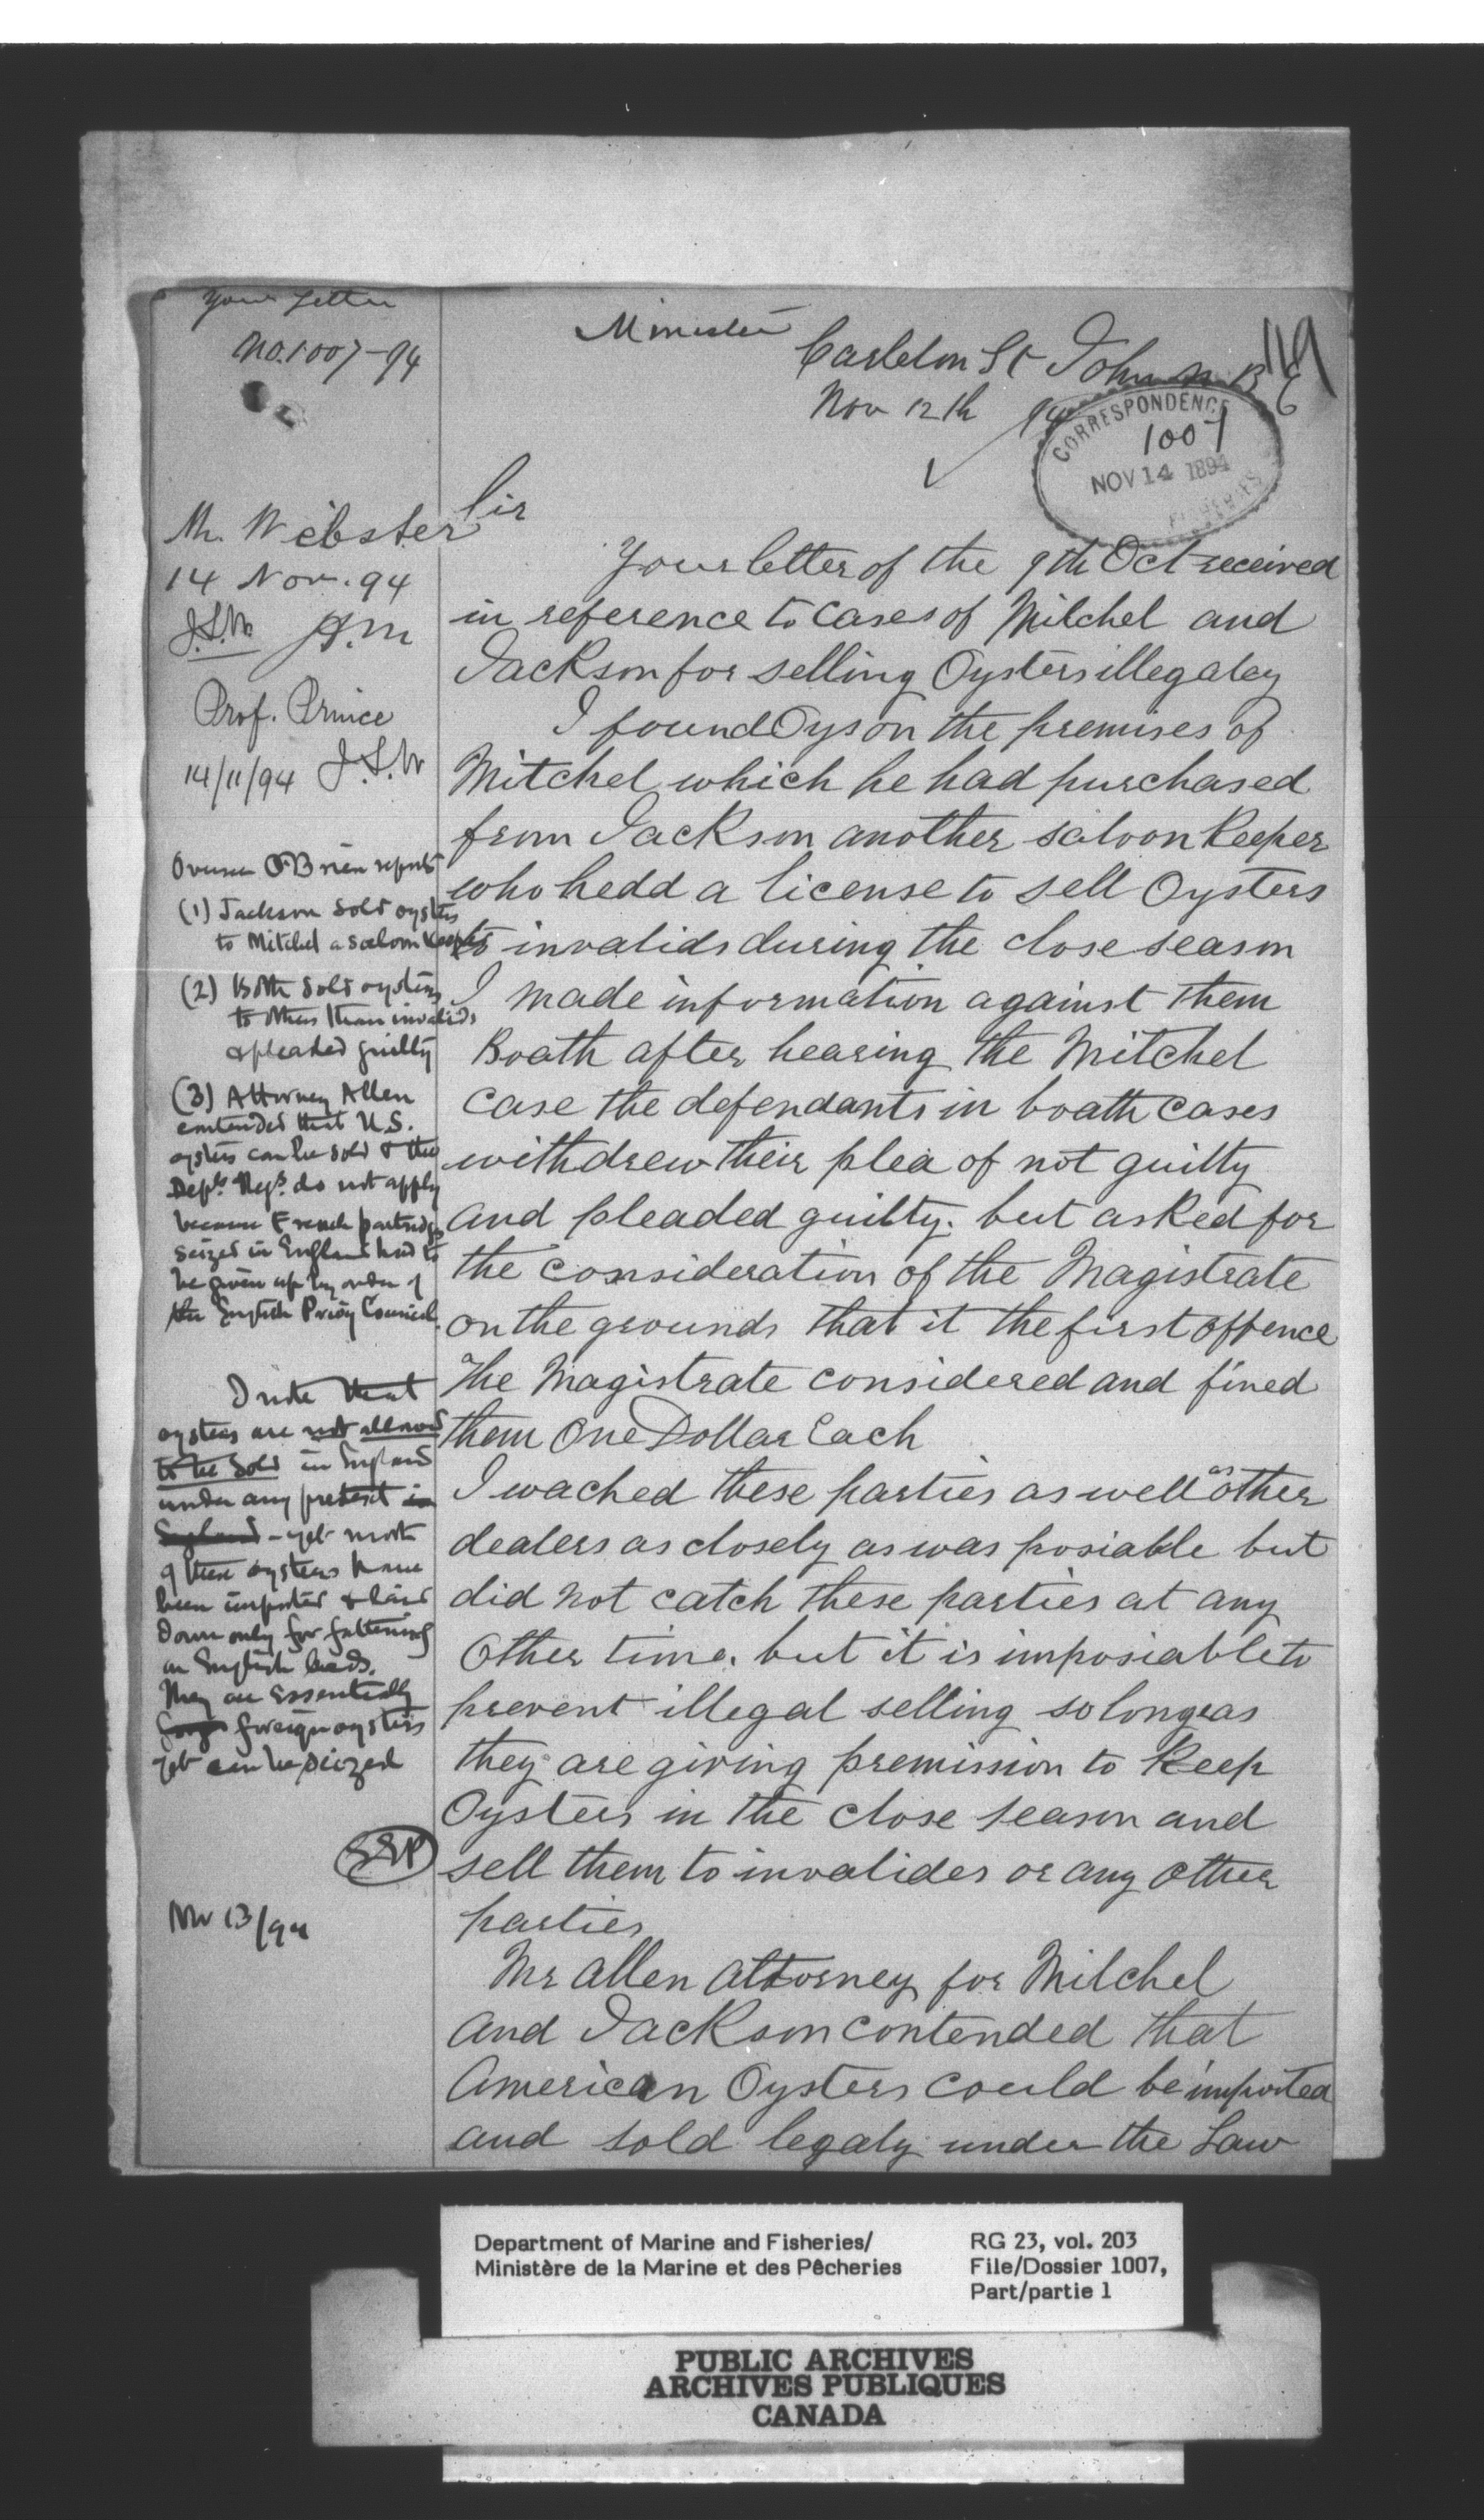 Your Letter
No. 1007-94
Minister
Carleton St John N B
Nov 12th 94
119
CORRESPONDENCE
1007
NOV 14 1894
FISHERIES
Mr. Webster
14 Nov. 94
J.S.W.
Prof. Prince
14/11/94 J.S.W
Overseer O'Brien reports
(1) Jackson sold oysters
to Mitchel a saloon keeper
(2) Both sold oysters
to others than invalids
& pleaded guilty
(3) Attorney Allen
contended that U.S.
oysters can be sold & the
Depts Regs. do not apply
because French partridges
seized in England had to
be given up by order of
the English Privy Council.
I note that
oysters are not allowed
to be sold in England
under any pretext in
England - yet most
of these oysters have
been imported & laid
down only for fattening
on English beds.
They are essentially
foreign oysters
yet can be seized
EEP
Nov 13/94
Sir
Your letter of the 9th Oct received
in reference to Cases of Mitchel and
Jackson for selling Oysters illegaley
I found Oys on the premises of
Mitchel which he had purchased
from Jackson another saloon Keeper
who hedd a license to sell Oysters
to invalids during the close season
I made information against them
Boath after hearing the Mitchel
case the defendants in boath cases
withdrew their plea of not guilty
and pleaded guilty. but asked for
the consideration of the Magistrate
on the grounds that it the first offence
The Magistrate considered and fined
them One Dollar Each
I wached these parties as well as other
dealers as closely as was posiable but
did not catch these parties at any
Other time. but it is imposiable to
prevent illegal selling so long as
they are giving premission to Keep
Oysters in the close season and
sell them to invalides or any other
parties
Mr Allen attorney for Mitchel
and Jackson contended that
American Oysters could be imported
and sold legaly under the Law
Department of Marine and Fisheries/
Ministère de la Marine et des Pêcheries
RG 23, vol. 203
File/Dossier 1007,
Part/partie 1
PUBLIC ARCHIVES
ARCHIVES PUBLIQUES
CANADA